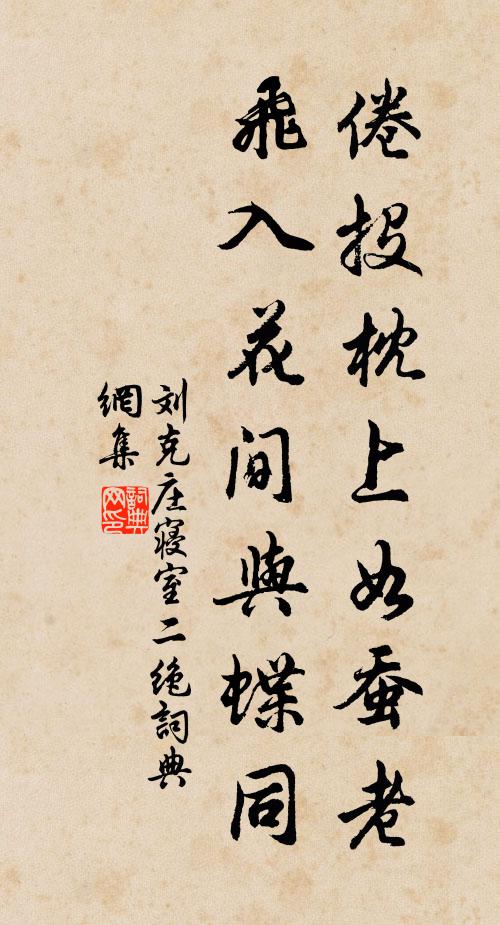 倦投枕上如蚕老
飛入花间與蝶同
刘克庄寝室二绝詞典
網集
詞典
网印